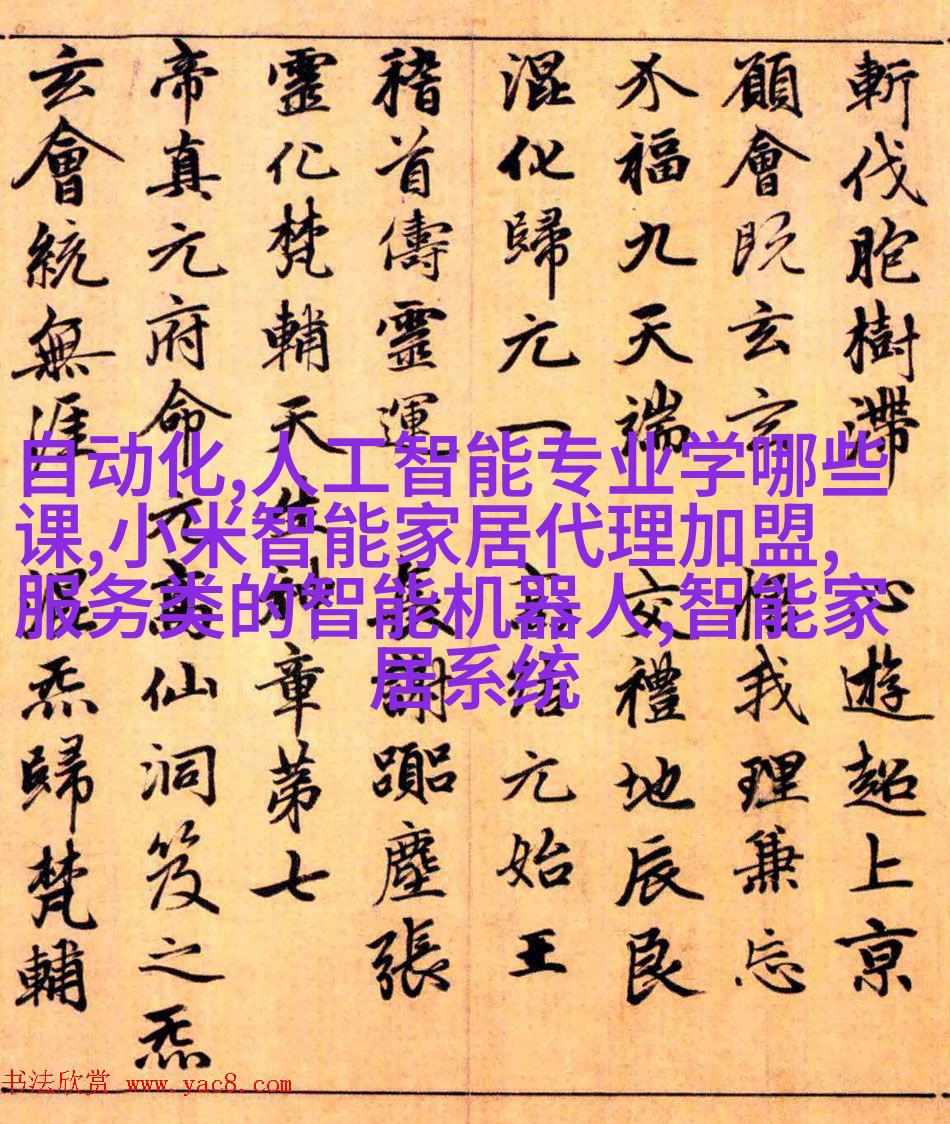 斬伐胞樹滯 心遊超上亰
願會既玄玄 悟我理兼忘
介福九天端 交禮地辰良
混化歸元一 高結元始王
稽首儔靈運 長謝躡塵張
靈化梵輔天生神章第七
帝真元府命元高仙洞笈之炁
玄會統無涯混炁歸梵輔
自动化,人工智能专业学哪些
课,小米智能家居代理加盟,
服务类的智能机器人,智能家
居系统
书法欣赏 www.yac8.com